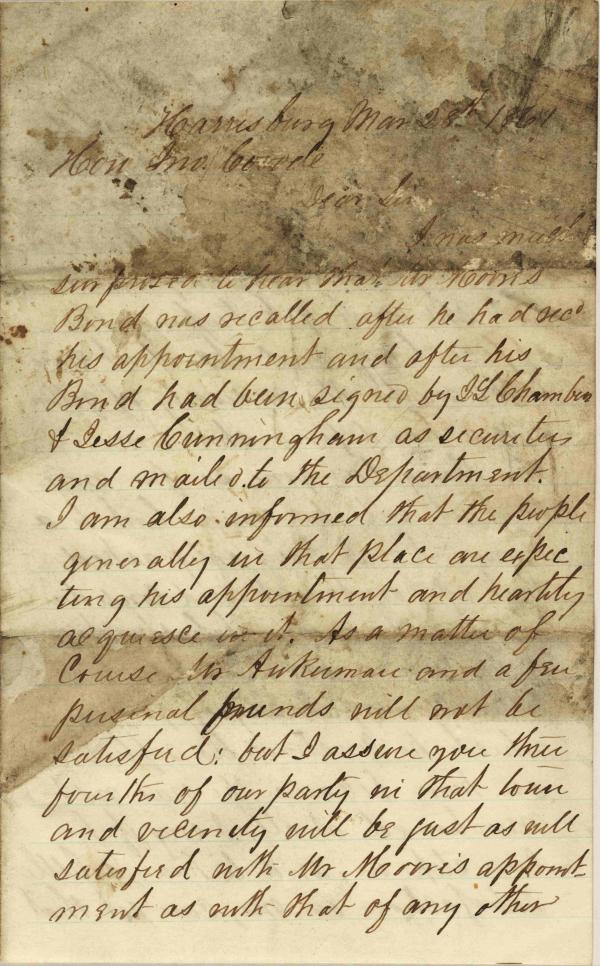 Harrisburg Mar 28th 1861
Hon Jno. Covode
Dear Sir
I was much
surprised to hear that Mr Moors
Bond was recalled after he had recd
his appointment and after his
Bond had been signed by I L Chambers
& Jesse Cunningham as securities
and mailed to the Department.
I am also informed that the people
generally in that place are expec
ting his appointment and heartily
acquiesce in it. As a matter of
Course Mr Ankerman and a few
personal friends will not be
satisfied; but I assure you three
fourths of our party in that town
and vicinity will be just as well
satisfied with Mr Moors appoint-
ment as with that of any other